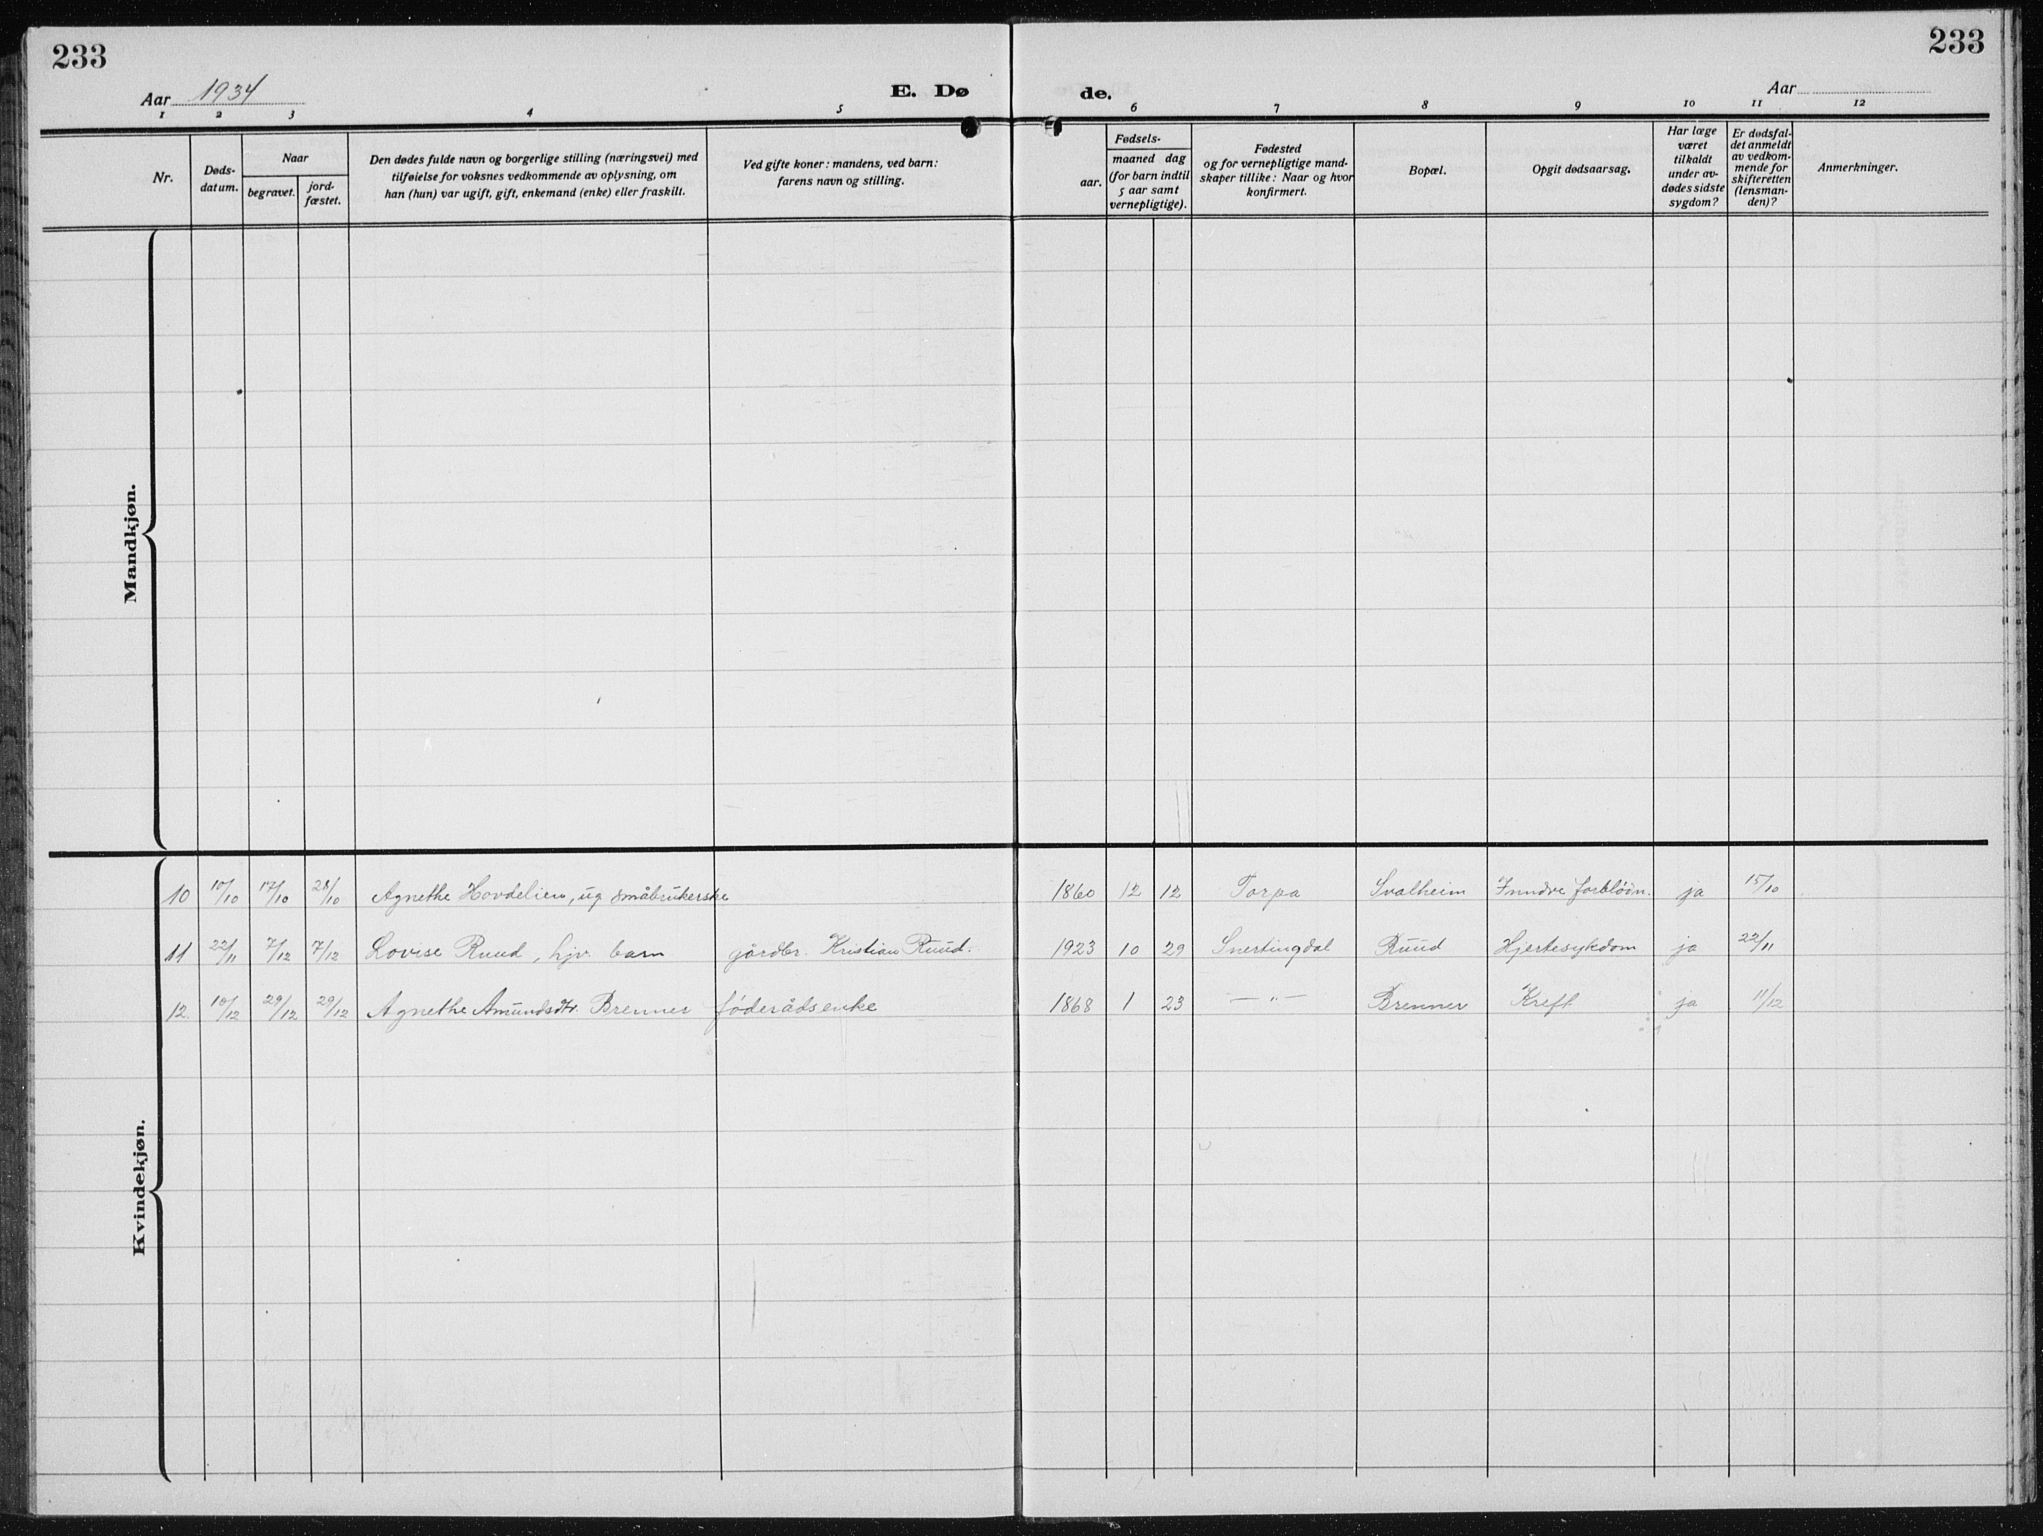 233
233
Aar 1934
E. Dø
de.
Aar
1 2 3 4 5 6 7 8 9 10 11 12
Nr.
Døds-
datum.
Naar
begravet.
jord-
fæstet.
Den dødes fulde navn og borgerlige stilling (næringsvei) med
tilføielse for voksnes vedkommende av oplysning, om
han (hun) var ugift, gift, enkemand (enke) eller fraskilt.
Ved gifte koner: mandens, ved barn:
farens navn og stilling.
Fødsels-
aar.
maaned dag
(for barn indtil
5 aar samt
vernepligtige).
Fødested
og for vernepligtige mand-
skaper tillike: Naar og hvor
konfirmert.
Bopæl.
Opgit dødsaarsag.
Har læge
været
tilkaldt
under av-
dødes sidste
sygdom?
Er dødsfal-
det anmeldt
av vedkom-
mende for
skifteretten
(lensman-
den)?
Anmerkninger.
Mandkjøn.
Kvindekjøn.
10 10/10 17/10 28/10 Agnethe Hovdelien, ug småbrukerske 1860 12 12 Torpa Svalheim forblødn. ja 15/10
11 22/11 7/12 7/12 Lovise Ruud, hjv. barn gårdbr. Kristian Ruud. 1923 10 29 Snertingdal Ruud Hjertesykdom ja 22/11
12. 10/12 29/12 29/12 Agnethe Amundsdtr. Brenner føderådsenke 1868 1 23 — " — Brenner Kreft ja 11/12